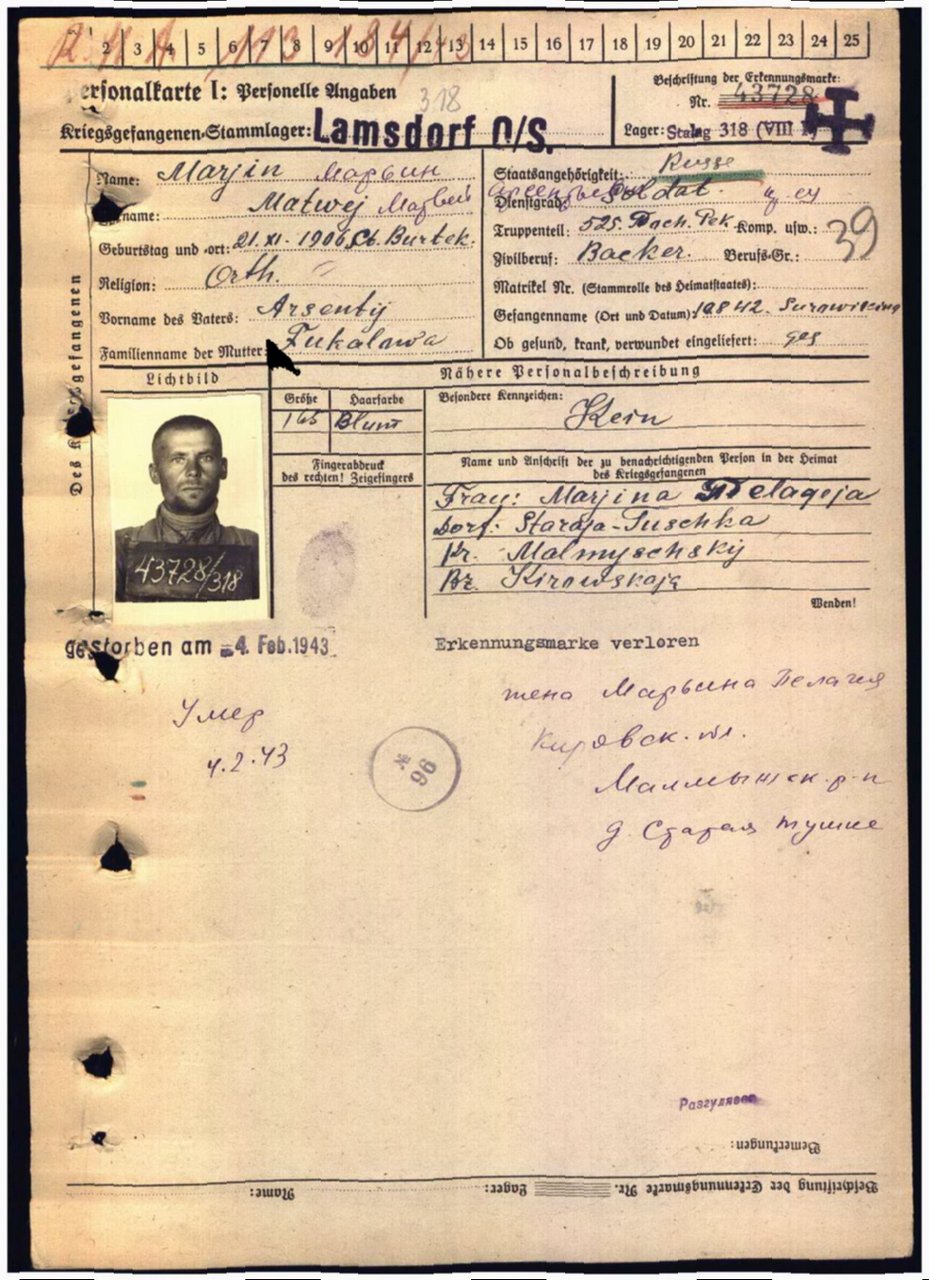 2 3 4 5 6 7 8 9 10 11 12 13 14 15 16 17 18 19 20 21 22 23 24 25
ersonalkarte I: Personelle Angaben
318
Kriegsgefangenen-Stammlager: Lamsdorf O/S.
Beschriftung der Erkennungsmarke:
Nr. 43728
Lager: Stalag 318 (VIII
Des K gefangenen
Name: Marjin Марьин
name: Matwej Матвей
Geburtstag und -ort: 21. XI. 1906 St. Burtek.
Religion: Orth.
Vorname des Vaters: Arsentij
Familienname der Mutter: Fukalowa
Staatsangehörigkeit: Russe
Dienstgrad: Soldat.
Truppenteil: 525. Komp. usw.:
Zivilberuf: Backer. Berufs-Gr.: 39
Matrikel Nr. (Stammrolle des Heimatstaates):
Gefangenname (Ort und Datum): 10842. Surowikino
Ob gesund, krank, verwundet eingeliefert: ges
Lichtbild
Nähere Personalbeschreibung
Größe Haarfarbe
165 Blunt
Besondere Kennzeichen:
Kein
Fingerabdruck
des rechten! Zeigefingers
Name und Anschrift der zu benachrichtigenden Person in der Heimat
des Kriegsgefangenen
Frau: Marjina Pelageja
Dorf: Staraja-Tuschka
Kr. Malmyschskij
Bz. Kirowskaja
Wenden!
43728/318
gestorben am -4. Feb. 1943
Erkennungsmarke verloren
Умер
4.2.43
№ 96
жена Марьина Пелагия
Кировск. обл.
Малмыжск р-н
д. Старая Тушке
Разгуляева
Bemerkungen:
Beschriftung der Erkennungsmarke Nr. Lager: Name: